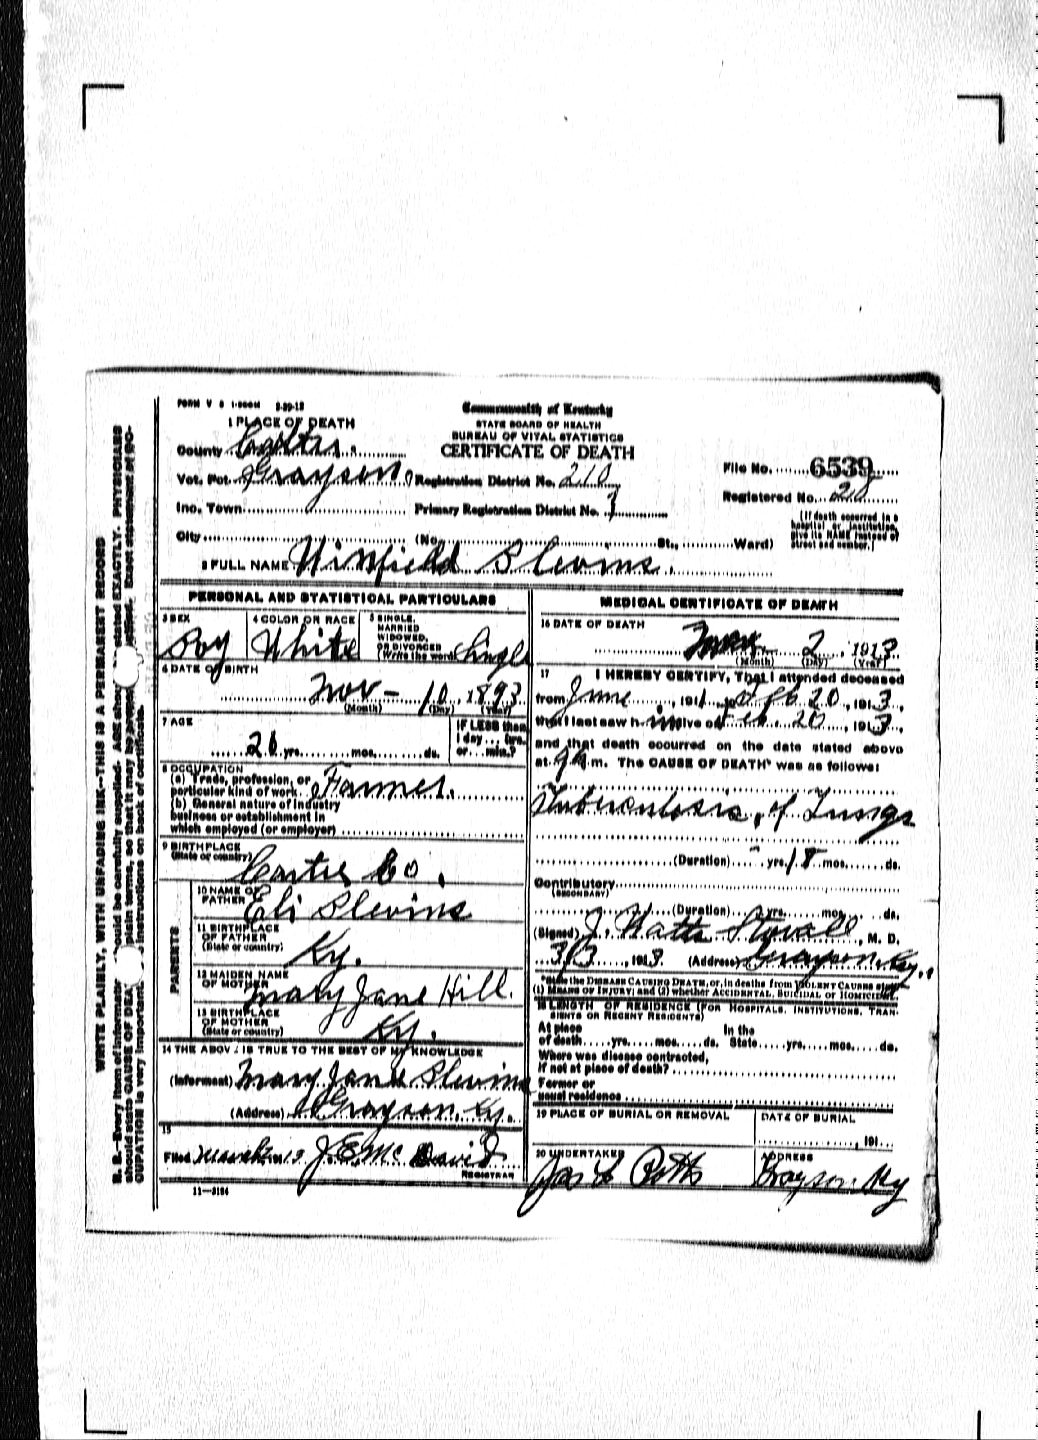 FORM V S 1-500M 3-29-12
Commonwealth of Kentucky
STATE BOARD OF HEALTH
BUREAU OF VITAL STATISTICS
CERTIFICATE OF DEATH
1 PLACE OF DEATH
County Carter.
Vot. Pct. Grayson Registration District No. 210
File No. 6539
Inc. Town Primary Registration District No.
Registered No. 28
City (No. St., Ward)
(If death occurred in a hospital or institution, give its NAME instead of street and number.)
2 FULL NAME Winfield Slevins.
PERSONAL AND STATISTICAL PARTICULARS
3 SEX Boy
4 COLOR OR RACE White
5 SINGLE, MARRIED WIDOWED, OR DIVORCED (Write the word) Single
6 DATE OF BIRTH
Nov- 10, 1893
(Month) (Day) (Year)
7 AGE
20 yrs. mos. ds.
IF LESS than 1 day hrs. or min.?
8 OCCUPATION
(a) Trade, profession, or particular kind of work Farmer.
(b) General nature of industry business or establishment in which employed (or employer)
9 BIRTHPLACE
(State or country) Carter Co.
PARENTS
10 NAME OF FATHER Eli Slevins
11 BIRTHPLACE OF FATHER (State or country) Ky.
12 MAIDEN NAME OF MOTHER Mary Jane Hill.
13 BIRTHPLACE OF MOTHER (State or country) Ky.
14 THE ABOVE IS TRUE TO THE BEST OF MY KNOWLEDGE
(Informant) Mary Jane Slevins
(Address) Grayson, Ky.
15
Filed March 191 J.E. McDavid
REGISTRAR
11-3184
MEDICAL CERTIFICATE OF DEATH
16 DATE OF DEATH
Mar 2, 1913
(Month) (Day) (Year)
17 I HEREBY CERTIFY, That I attended deceased
from June, 191 to Feb 20, 1913,
that I last saw him alive on Feb. 20, 1913,
and that death occurred on the date stated above
at 9 a m. The CAUSE OF DEATH* was as follows:
Tuberculosis, of Lungs
(Duration) yrs. 18 mos. ds.
Contributory
(SECONDARY)
(Duration) yrs. mos. ds.
(Signed) J. Watts Stovall, M. D.
3/3, 1913. (Address) Grayson, Ky.
*State the DISEASE CAUSING DEATH, or, in deaths from VIOLENT CAUSES state
(1) MEANS OF INJURY; and (2) whether ACCIDENTAL, SUICIDAL or HOMICIDAL.
18 LENGTH OF RESIDENCE (FOR HOSPITALS, INSTITUTIONS, TRANSIENTS OR RECENT RESIDENTS)
At place of death yrs. mos. ds. In the State yrs. mos. ds.
Where was disease contracted,
if not at place of death?
Former or
usual residence
19 PLACE OF BURIAL OR REMOVAL
DATE OF BURIAL
, 191
20 UNDERTAKER
Potts
ADDRESS
Grayson Ky
WRITE PLAINLY, WITH UNFADING INK—THIS IS A PERMANENT RECORD